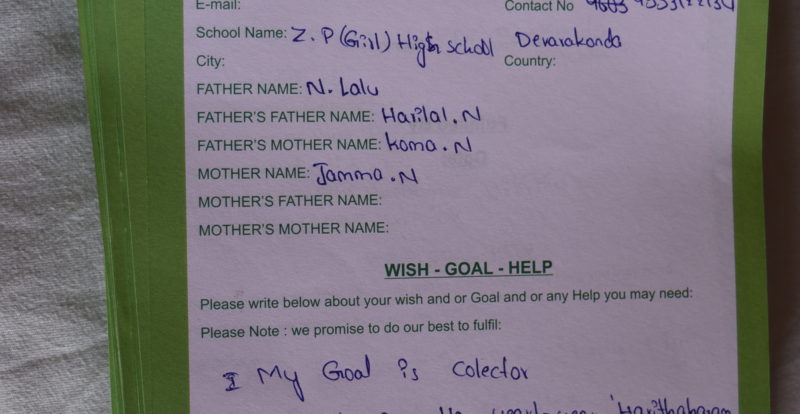 E-mail: Contact No
School Name: Z.P (Girl) High school Devarakonda
City: Country:
FATHER NAME: N. Lalu
FATHER'S FATHER NAME: Harilal.N
FATHER'S MOTHER NAME: koma.N
MOTHER NAME: Jamma.N
MOTHER'S FATHER NAME:
MOTHER'S MOTHER NAME:
WISH - GOAL - HELP
Please write below about your wish and or Goal and or any Help you may need:
Please Note : we promise to do our best to fulfil:
I My Goal is Colector